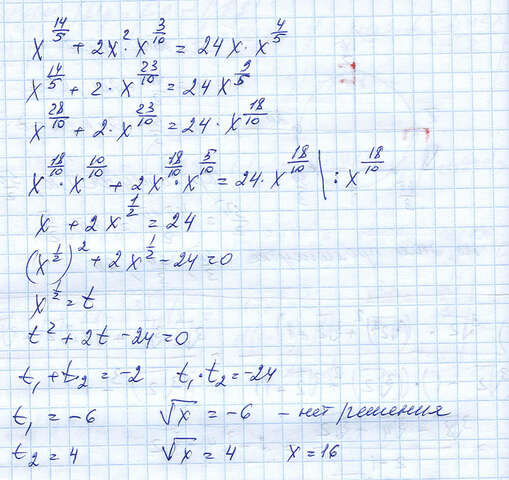 x^{14/5} + 2x^2 · x^{3/10} = 24x · x^{4/5}
x^{14/5} + 2 · x^{23/10} = 24x^{9/5}
x^{28/10} + 2 · x^{23/10} = 24 · x^{18/10}
x^{18/10} · x^{10/10} + 2x^{18/10} · x^{5/10} = 24 · x^{18/10} | : x^{18/10}
x + 2x^{1/2} = 24
(x^{1/2})^2 + 2x^{1/2} - 24 = 0
x^{1/2} = t
t^2 + 2t - 24 = 0
t_1 + t_2 = -2 t_1 · t_2 = -24
t_1 = -6 √x = -6 - нет решения
t_2 = 4 √x = 4 x = 16